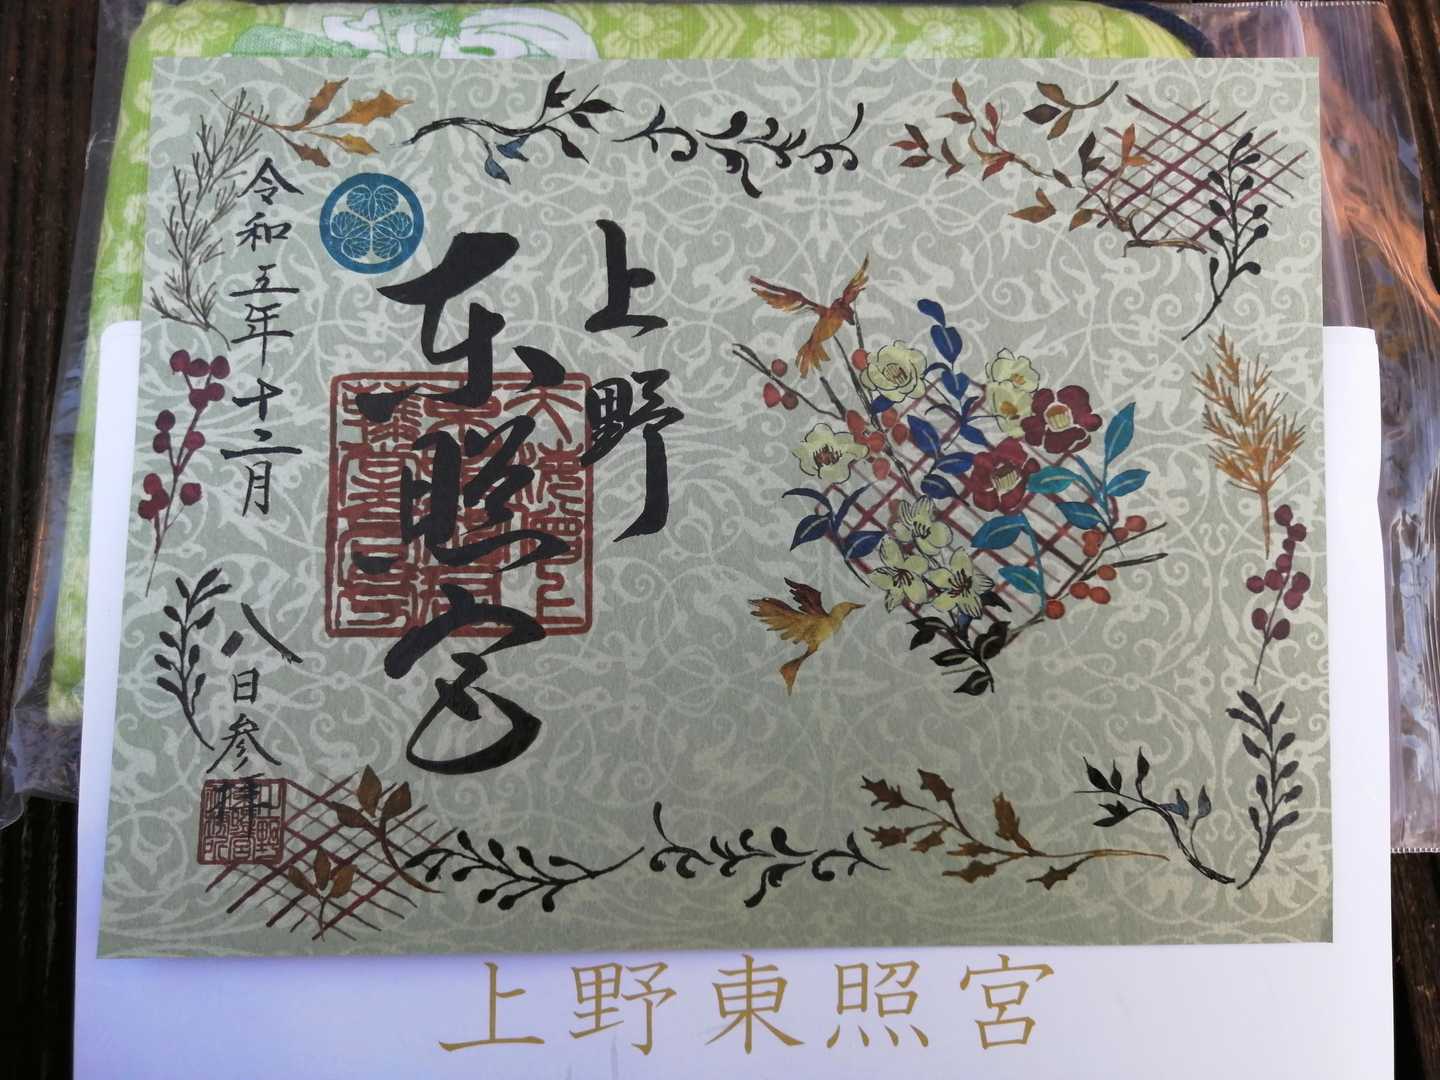 上野
東照宮
令和五年十二月
八日参拝
上野東照宮